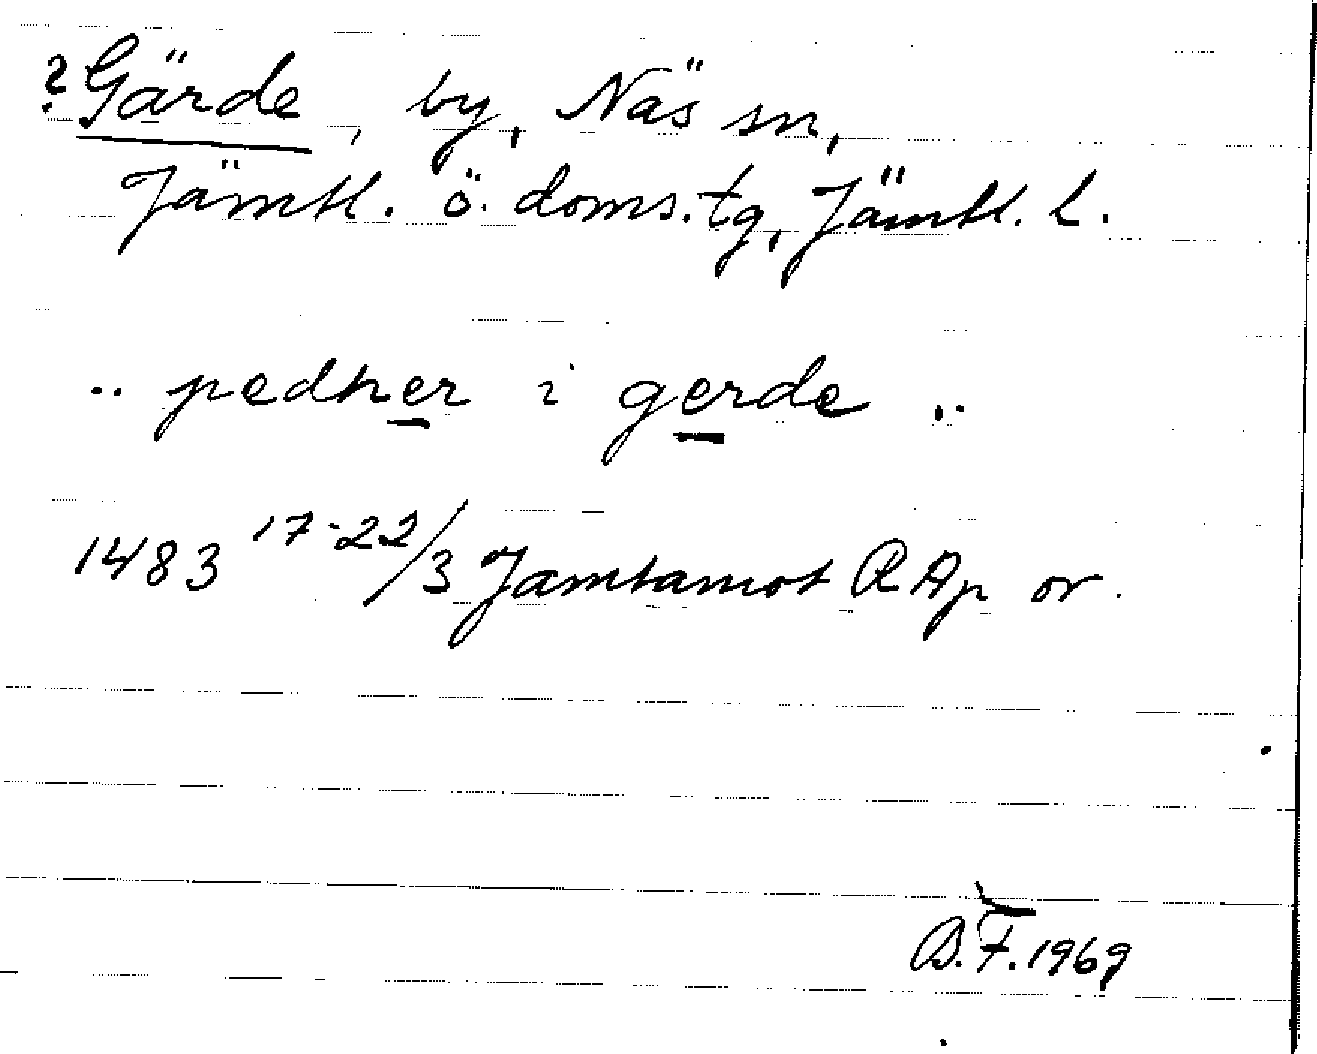 ? Gärde, by, Näs sn,
Jämtl. ö. doms.tg, Jämtl. L.
.. pedher i gerde ..
1483 17-22/3 Jamtamot RAp or.
B.F. 1969